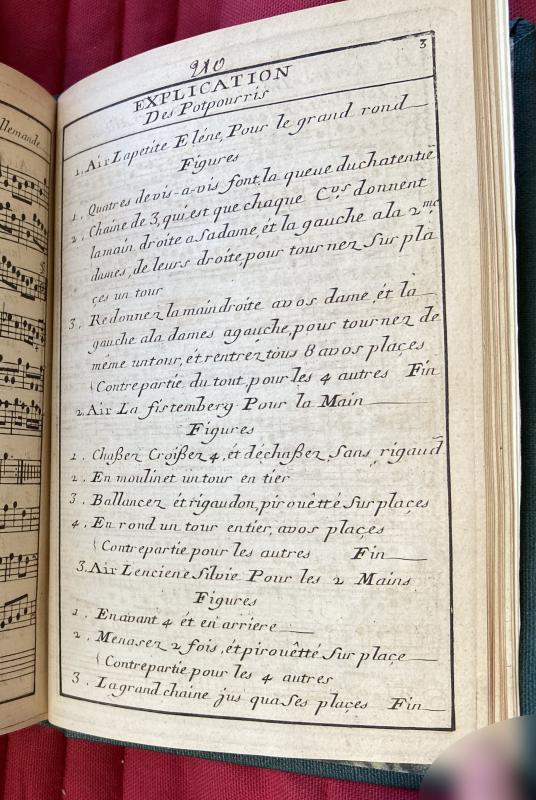 llemande
210
3
EXPLICATION
Des Potpourris
1. Air Lapetite Eléne, Pour le grand rond
Figures
1. Quatres devis-a-vis font, la queue duchatentie
2. Chaine de 3, qui est que chaque C.vs donnent
lamain droite asadame, ét la gauche ala 2.me
dames, de leurs droite, pour tournez sur pla
çes un tour
3. Redonnez lamaindroite avos dame, ét la
gauche ala dames agauche, pour tournez de
même untour, ét rentréz tous 8 avos plaçes
Contrepartie du tout, pour les 4 autres Fin
2. Air La fistemberg Pour la Main
Figures
1. Chaßez Croißez 4, ét déchaßez, Sans rigaud
2. En moulinet untour en tier
3. Ballancez ét rigaudon, pirouêtté surplaçes
4. En rond un tour entier, avos plaçes
Contrepartie pour les autres Fin
3. Air Lenciene Silvie Pour les 2 Mains
Figures
1. Enavant 4 ét en arriere
2. Menasez 2 fois, ét pirouêtté sur plaçe
Contrepartie pour les 4 autres
3. Lagrand chaine jus quases plaçes Fin